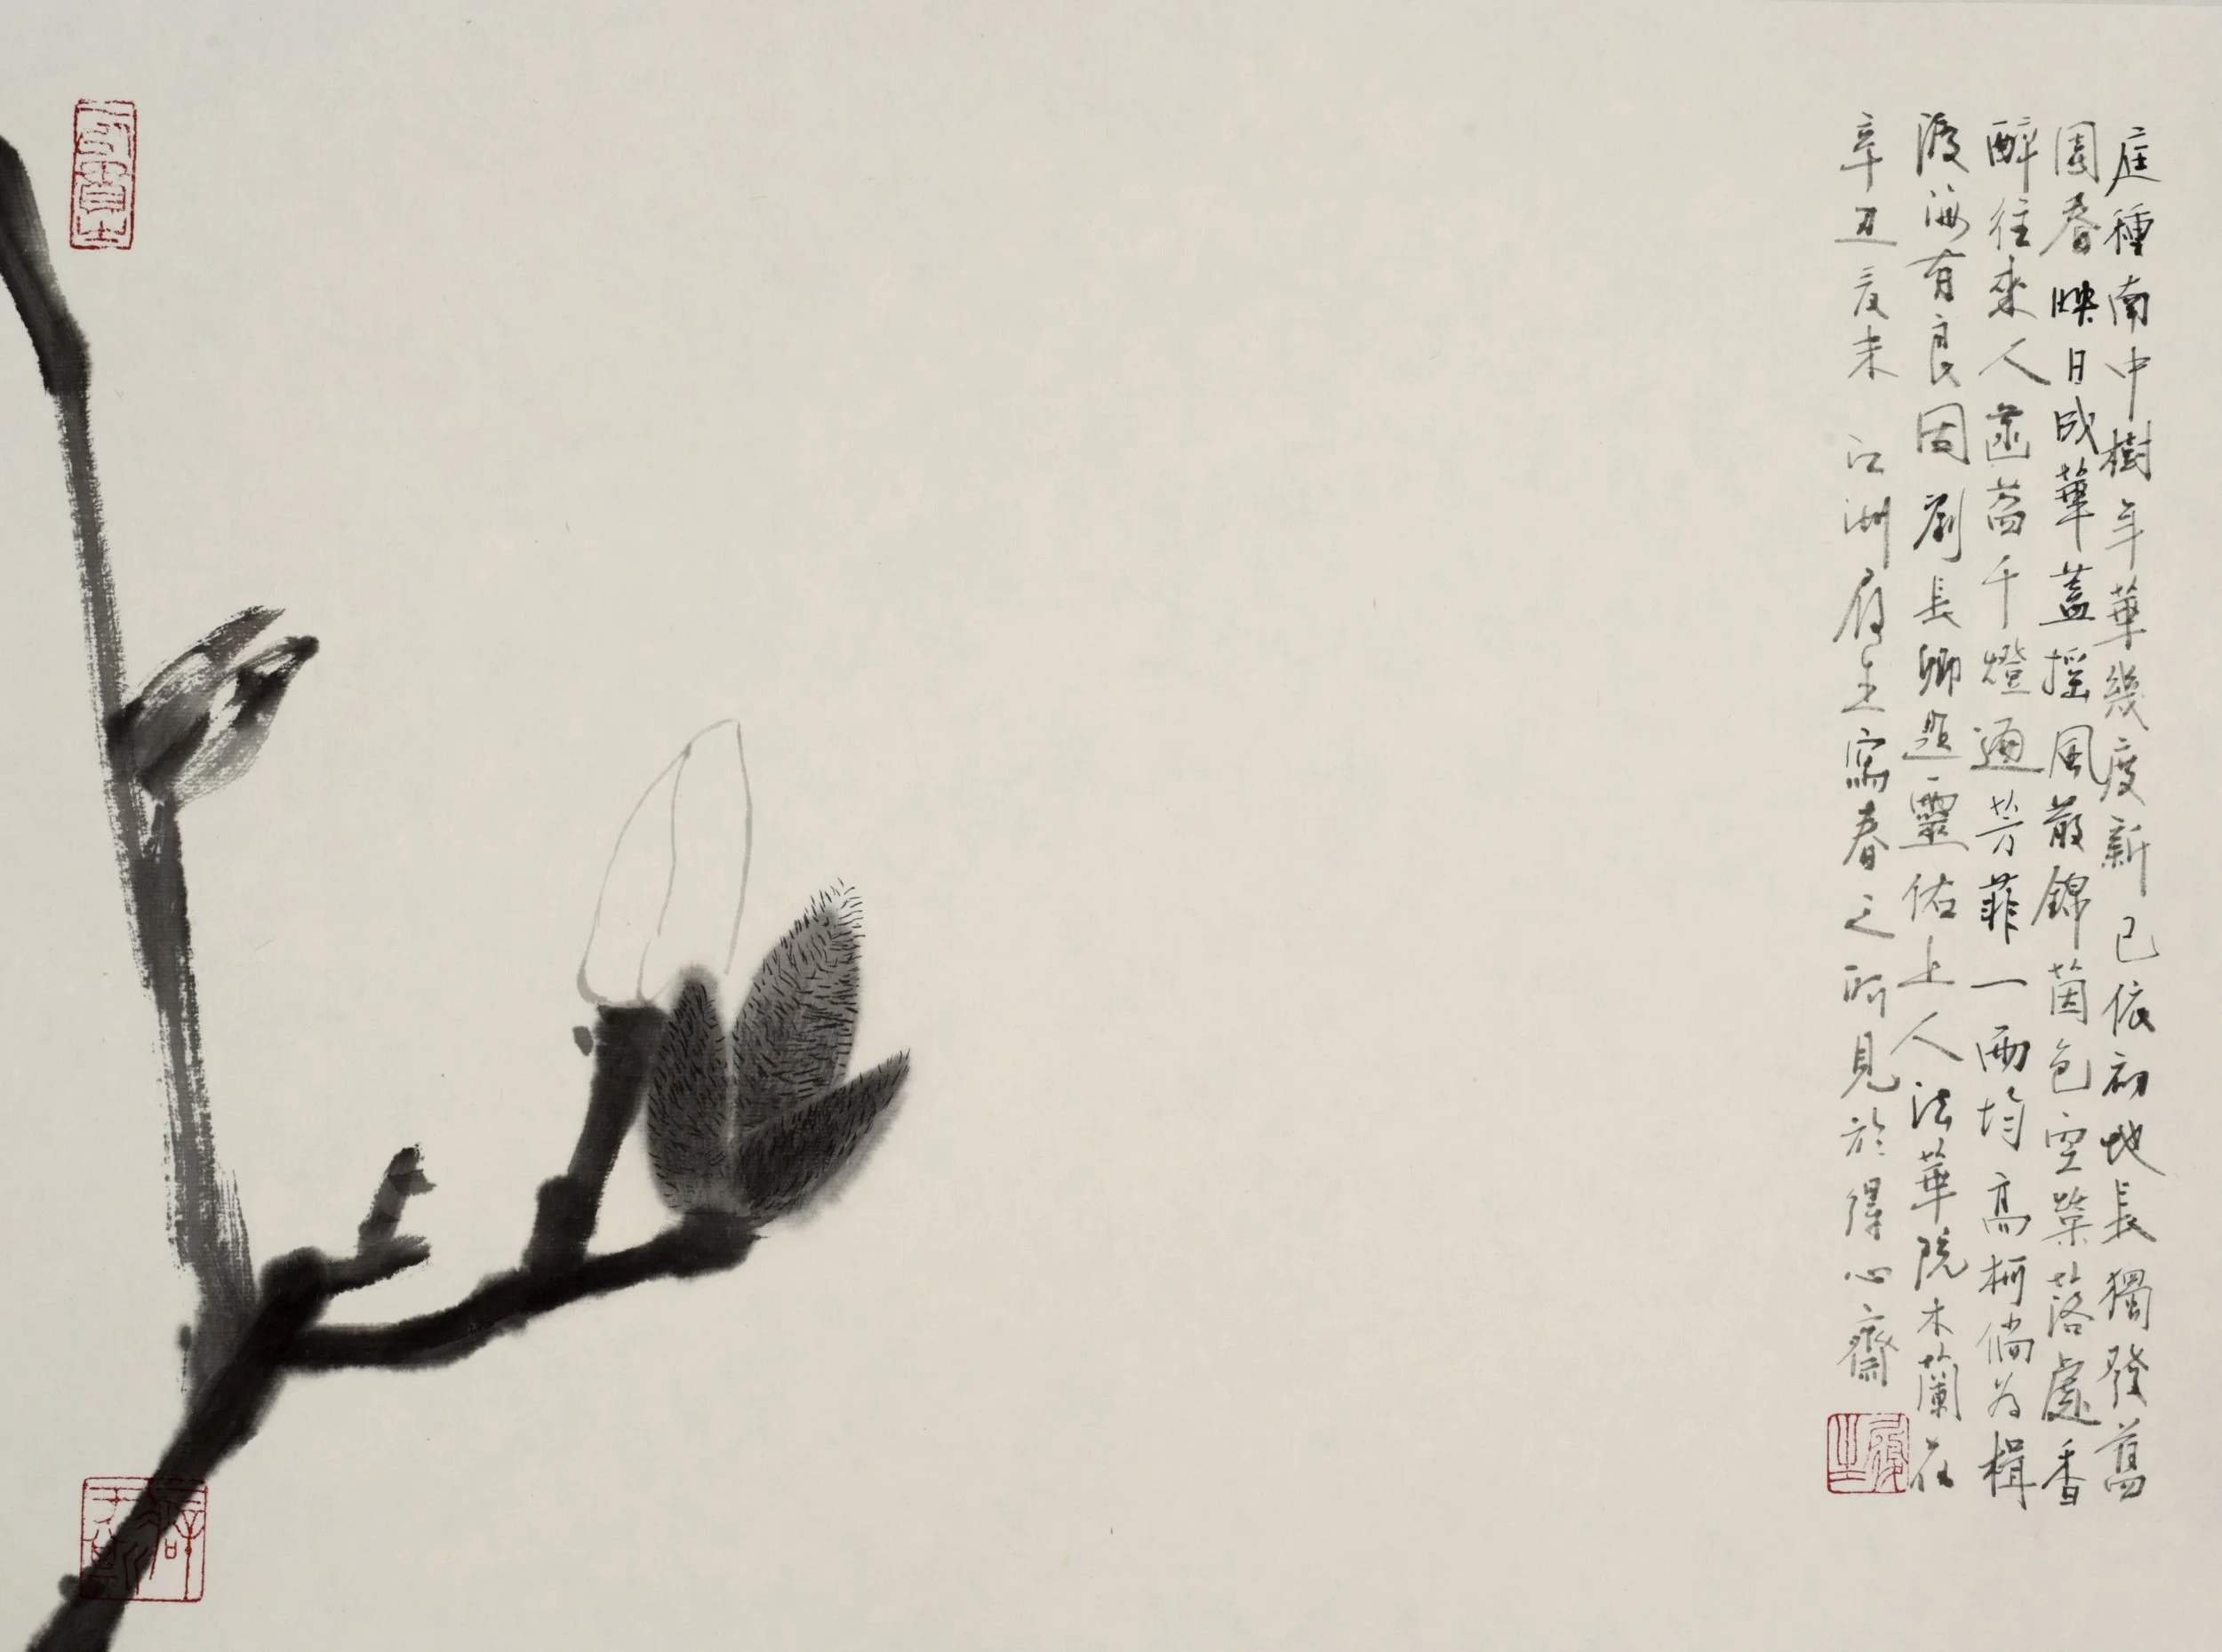 庭種南中樹年華幾度新已依初地長獨發舊
園春映日成華蓋搖風散錦茵色空榮落處香
醉往來人菡萏千燈遍芳菲一雨均高柯倘為楫
渡海有良因 劉長卿題靈佑上人法華院木蘭花
辛丑夏末 江洲履之寫春之所見於得心齋
履之